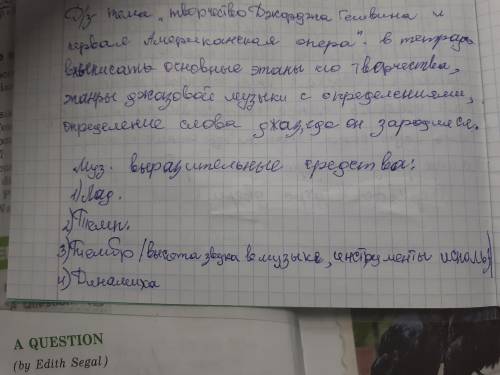 Д/з тема „творчество Джорджа Гешвина и
первая Американская опера". в тетрадь
выписать основные этапы его творчества,
жанры джазовой музыки с определениями,
определение слова джаз, где он зародился.
Муз. выразительные средства:
1) Лад.
2) Темп.
3) Тембр (высота звука в музыке, инструменты исполь)
4) Динамика
A QUESTION
(by Edith Segal)